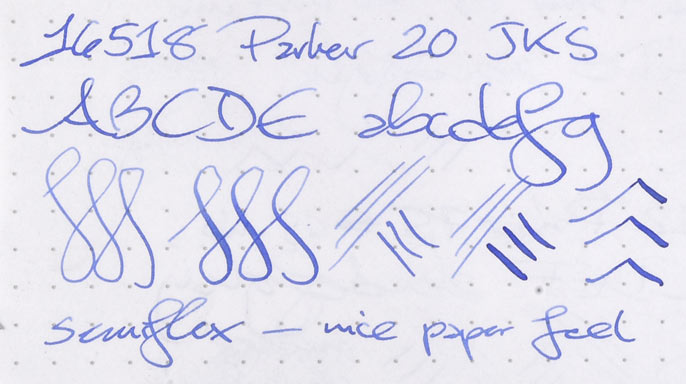 16518 Parker 20 JKS
ABCDE abcdefg
semiflex — nice paper feel